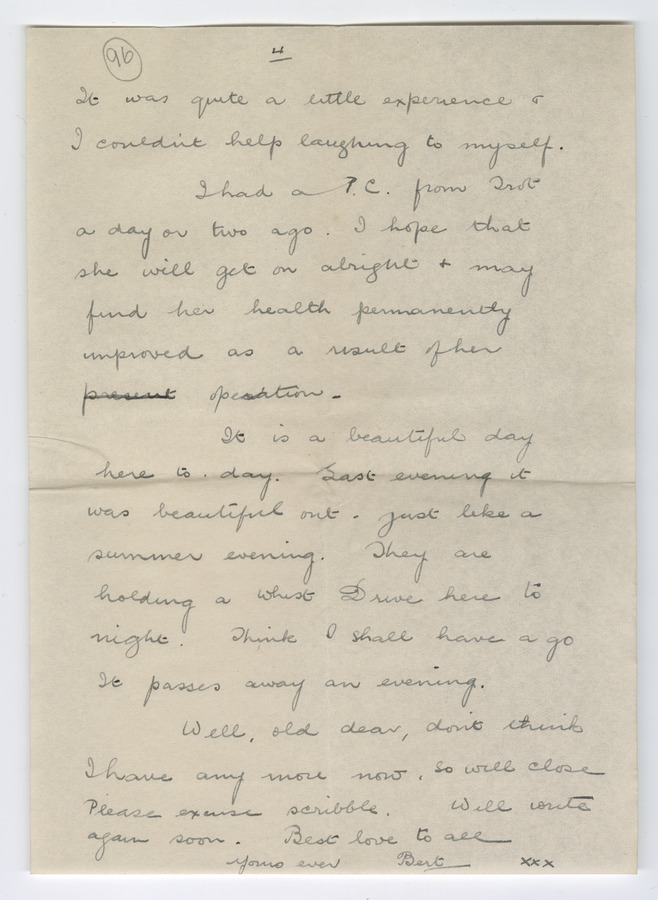 96
4
It was quite a little experience &
I couldn't help laughing to myself.
I had a P.C. from Trot
a day or two ago. I hope that
she will get on alright + may
find her health permanently
improved as a result of her
present operation -
It is a beautiful day
here to. day. Last evening it
was beautiful out - just like a
summer evening. They are
holding a whist Drive here to
night. Think I shall have a go
It passes away an evening.
Well, old dear, don't think
I have any more now, so will close
Please excuse scribble. Will write
again soon. Best love to all
Yours ever Bert xxx